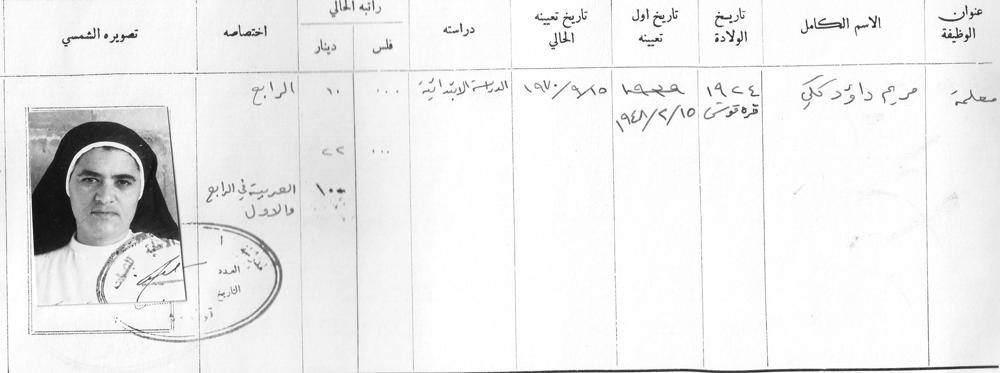 عنوان الوظيفة
الاسم الكامل
تاريخ الولادة
تاريخ اول تعيينه
تاريخ تعيينه الحالي
دراسته
راتبه الحالي
فلس
دينار
اختصاصه
تصويره الشمسي
معلمة
مريم داؤد ككي
١٩٢٤
قره قوش
١٩٣٩
١٩٤٨/٢/١٥
١٩٧٠/٩/١٥
الدراسة الابتدائية
...
١٠
الرابع
...
٢٢
١٠
العربية في الرابع
والاول
العدد
التاريخ